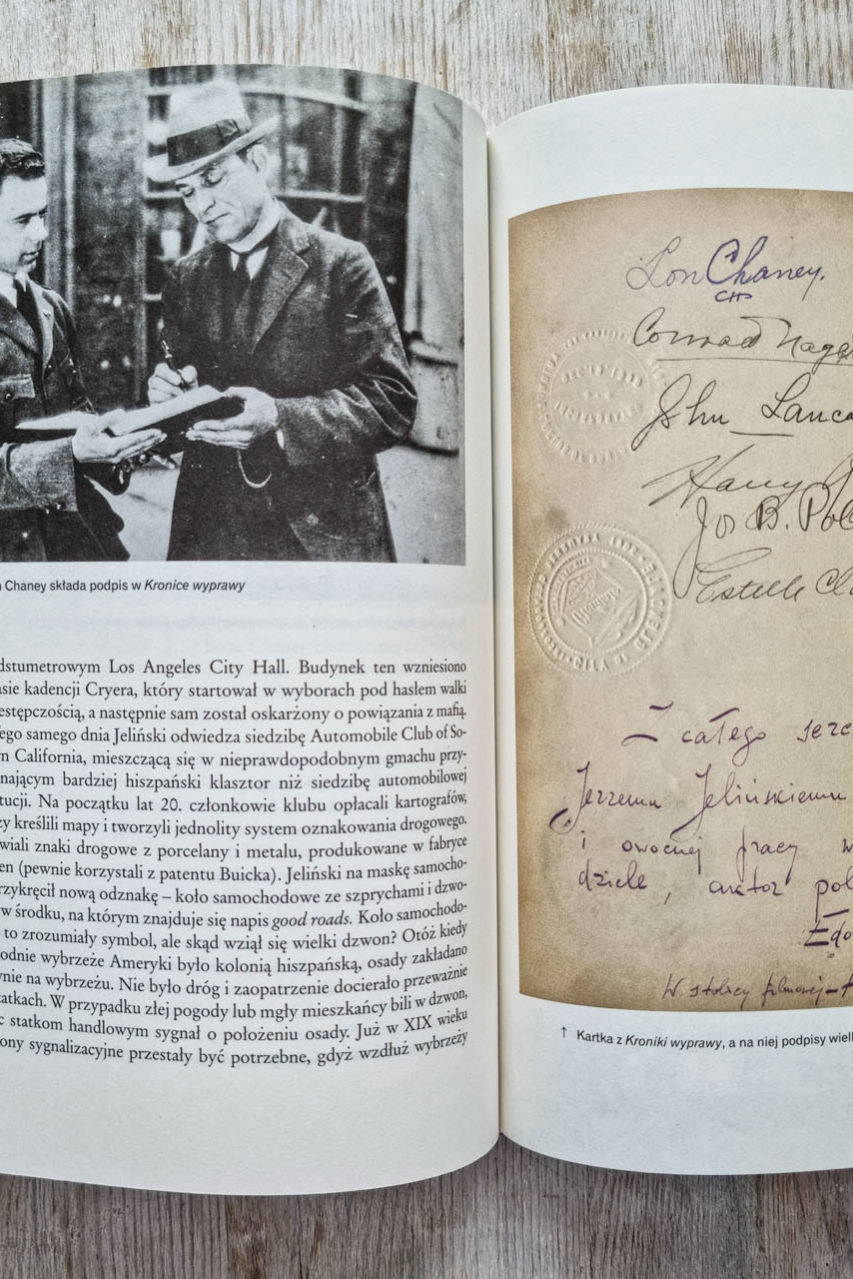 Chaney składa podpis w Kronice wyprawy
dstumetrowym Los Angeles City Hall. Budynek ten wzniesiono
sie kadencji Cryera, który startował w wyborach pod hasłem walki
estępczością, a następnie sam został oskarżony o powiązania z mafią.
ego samego dnia Jeliński odwiedza siedzibę Automobile Club of So-
rn California, mieszczącą się w nieprawdopodobnym gmachu przy-
nającym bardziej hiszpański klasztor niż siedzibę automobilowej
tucji. Na początku lat 20. członkowie klubu opłacali kartografów,
zy kreślili mapy i tworzyli jednolity system oznakowania drogowego.
wiali znaki drogowe z porcelany i metalu, produkowane w fabryce
en (pewnie korzystali z patentu Buicka). Jeliński na maskę samocho-
rzykręcił nową odznakę – koło samochodowe ze szprychami i dzwo-
w środku, na którym znajduje się napis good roads. Koło samochodo-
to zrozumiały symbol, ale skąd wziął się wielki dzwon? Otóż kiedy
odnie wybrzeże Ameryki było kolonią hiszpańską, osady zakładano
ynie na wybrzeżu. Nie było dróg i zaopatrzenie docierało przeważnie
atkach. W przypadku złej pogody lub mgły mieszkańcy bili w dzwon,
c statkom handlowym sygnał o położeniu osady. Już w XIX wieku
ony sygnalizacyjne przestały być potrzebne, gdyż wzdłuż wybrzeży
Lon Chaney.
Conrad Nage
John Lanca
Harry
Jos B. Pol
Estelle Cl
Z całego serc
Jerzemu Jelińskiemu
i owocnej pracy w
dziele, aktor pol
W stolicy filmowej
↑ Kartka z Kroniki wyprawy, a na niej podpisy wielk